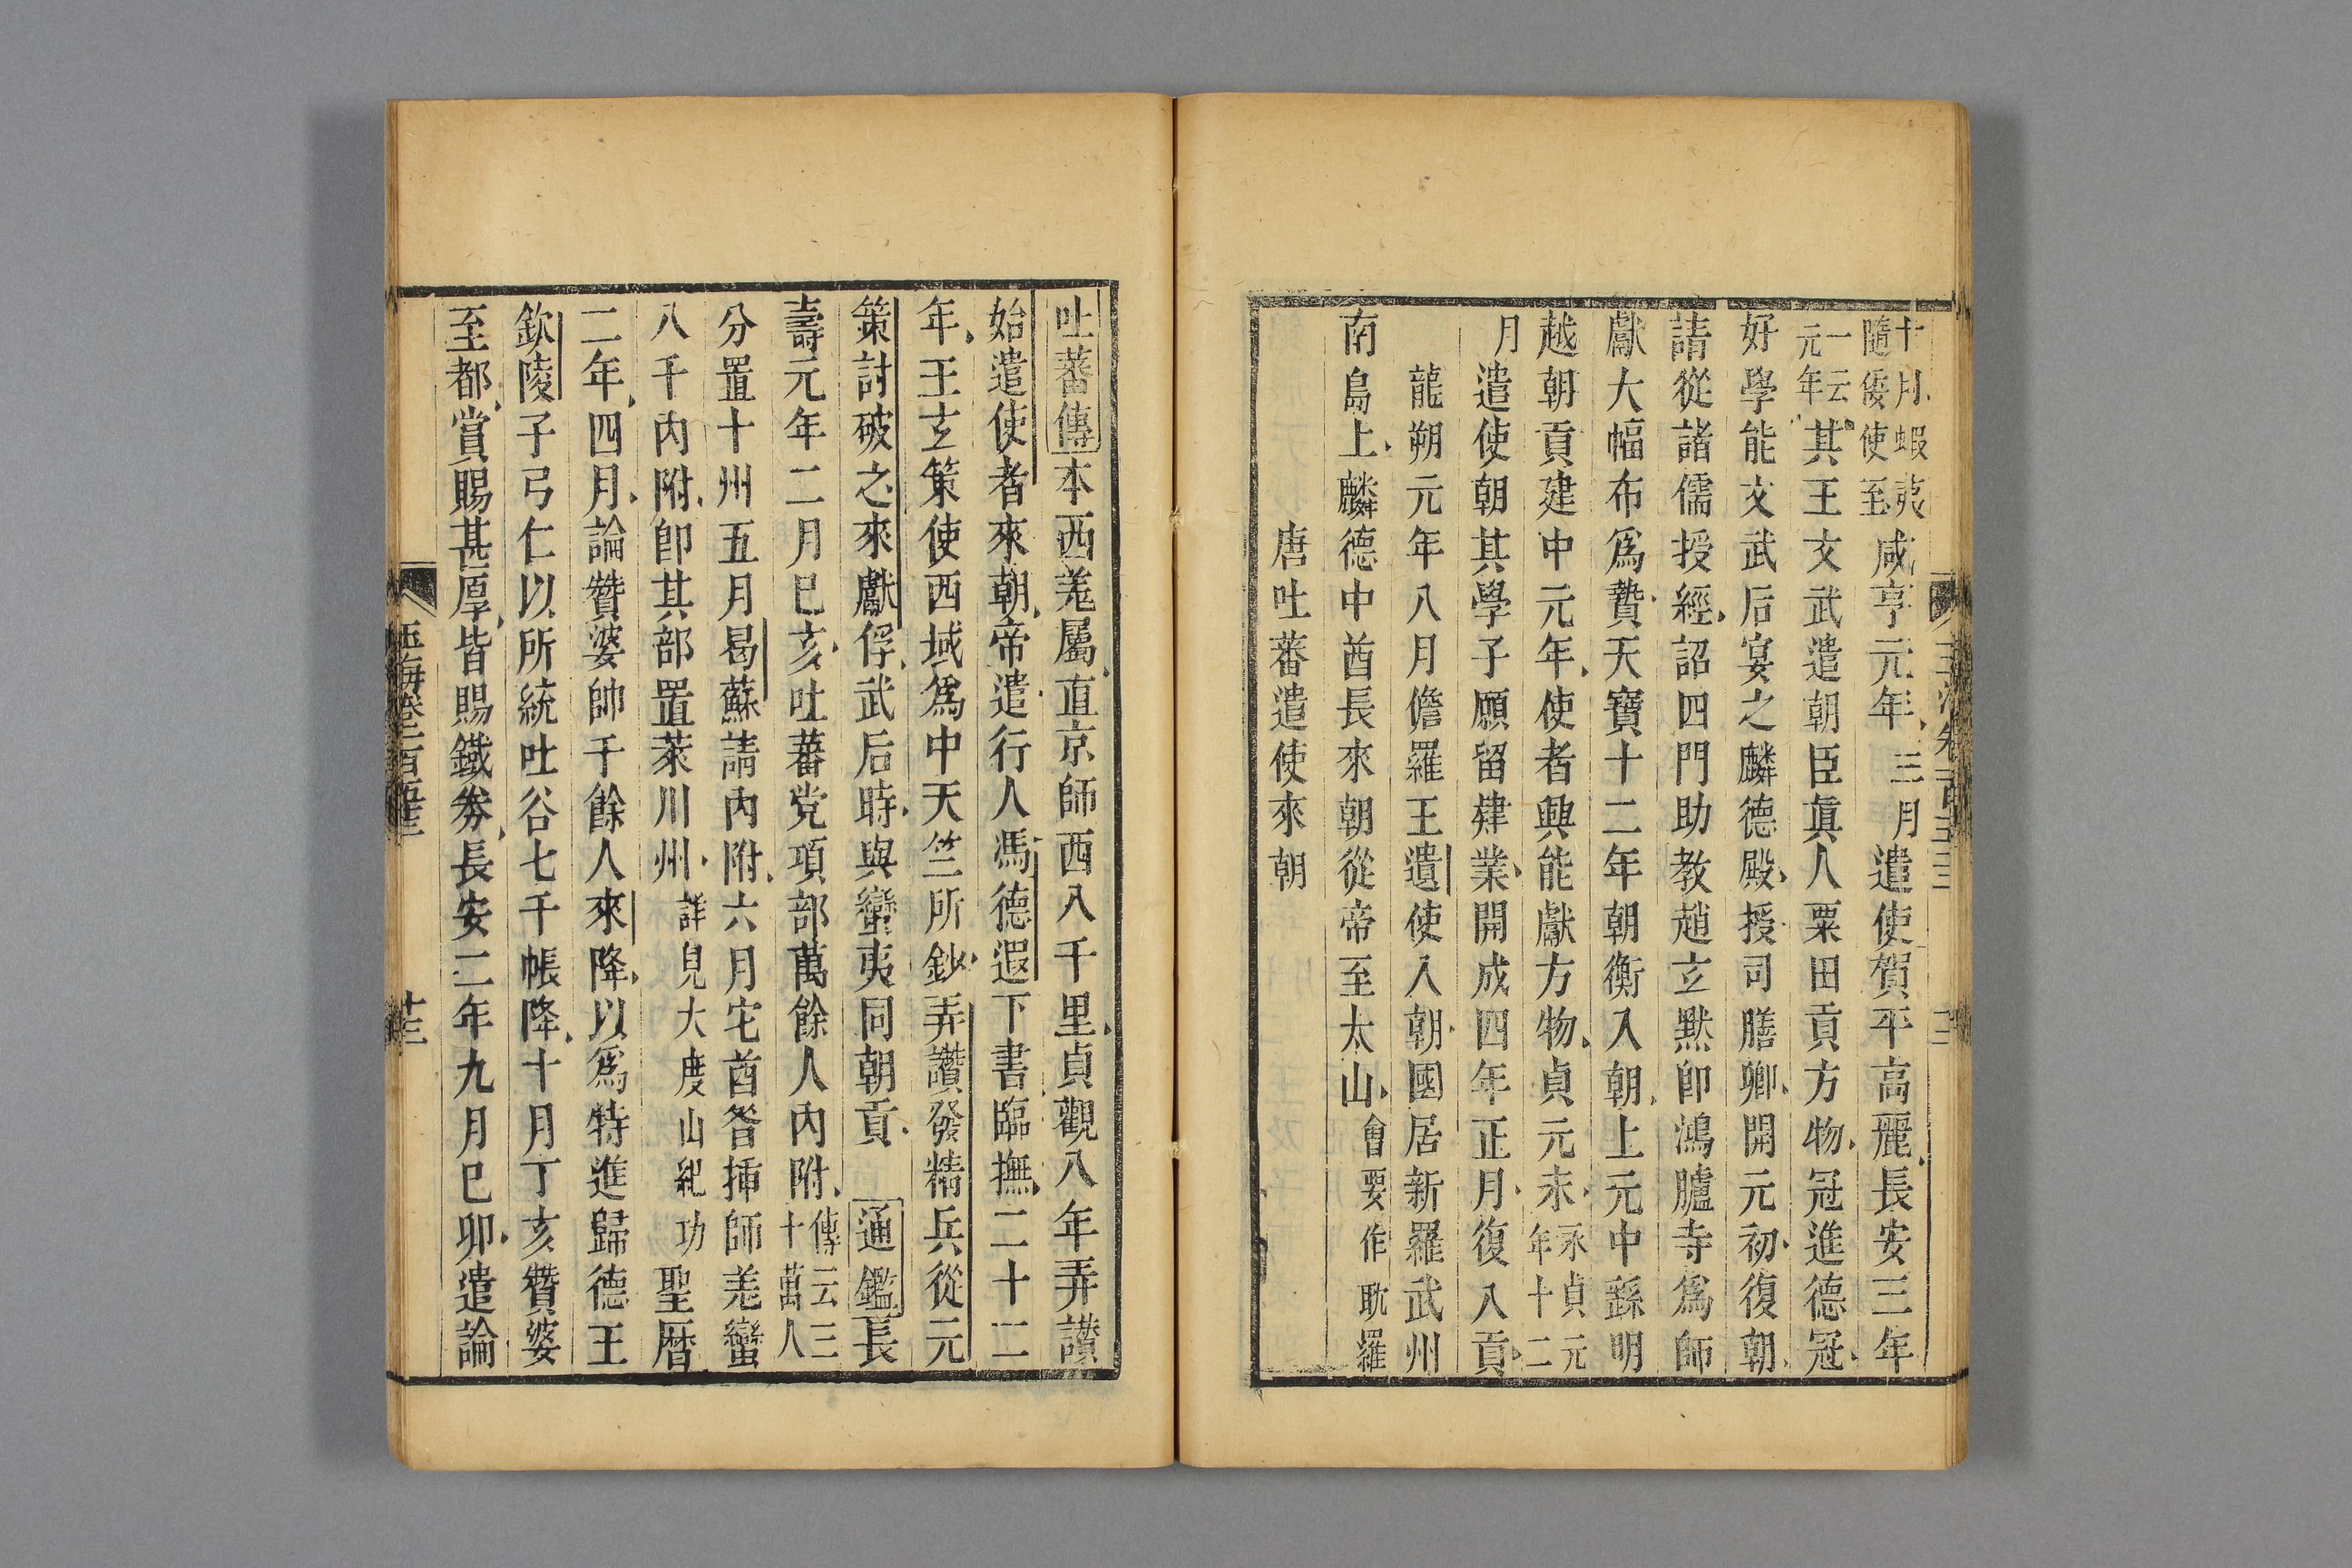 十月蝦夷隨倭使至咸亨元年三月遣使賀平高麗長安三年
一云元年其王文武遣朝臣真人粟田貢方物冠進德冠
好學能文武后宴之麟德殿授司膳卿開元初復朝
請從諸儒授經詔四門助教趙玄默即鴻臚寺爲師
獻大幅布爲贄天寶十二年朝衡入朝上元中繇明
越朝貢建中元年使者興能獻方物貞元末永貞元年十二
月遣使朝其學子願留肄業開成四年正月復入貢
龍朔元年八月儋羅王遣使入朝國居新羅武州
南島上麟德中酋長來朝從帝至太山會要作耽羅
唐吐蕃遣使來朝
吐蕃傳本西羌屬直京師西八千里貞觀八年弄讃
始遣使者來朝帝遣行人馮德遐下書臨撫二十二
年王玄策使西域爲中天竺所鈔弄讃發精兵從元
策討破之來獻俘武后時與蠻夷同朝貢 通鑑長
壽元年二月巳亥吐蕃党項部萬餘人內附傳云三十萬人
分置十州五月曷蘇請內附六月宅酋昝插師羌蠻
八千內附即其部置萊川州詳見大度山紀功聖曆
二年四月論贊婆帥千餘人來降以爲特進歸德王
欽陵子弓仁以所統吐谷七千帳降十月丁亥贊婆
至都賞賜甚厚皆賜鐵券長安二年九月巳卯遣論
玉海卷一百五十三 十三